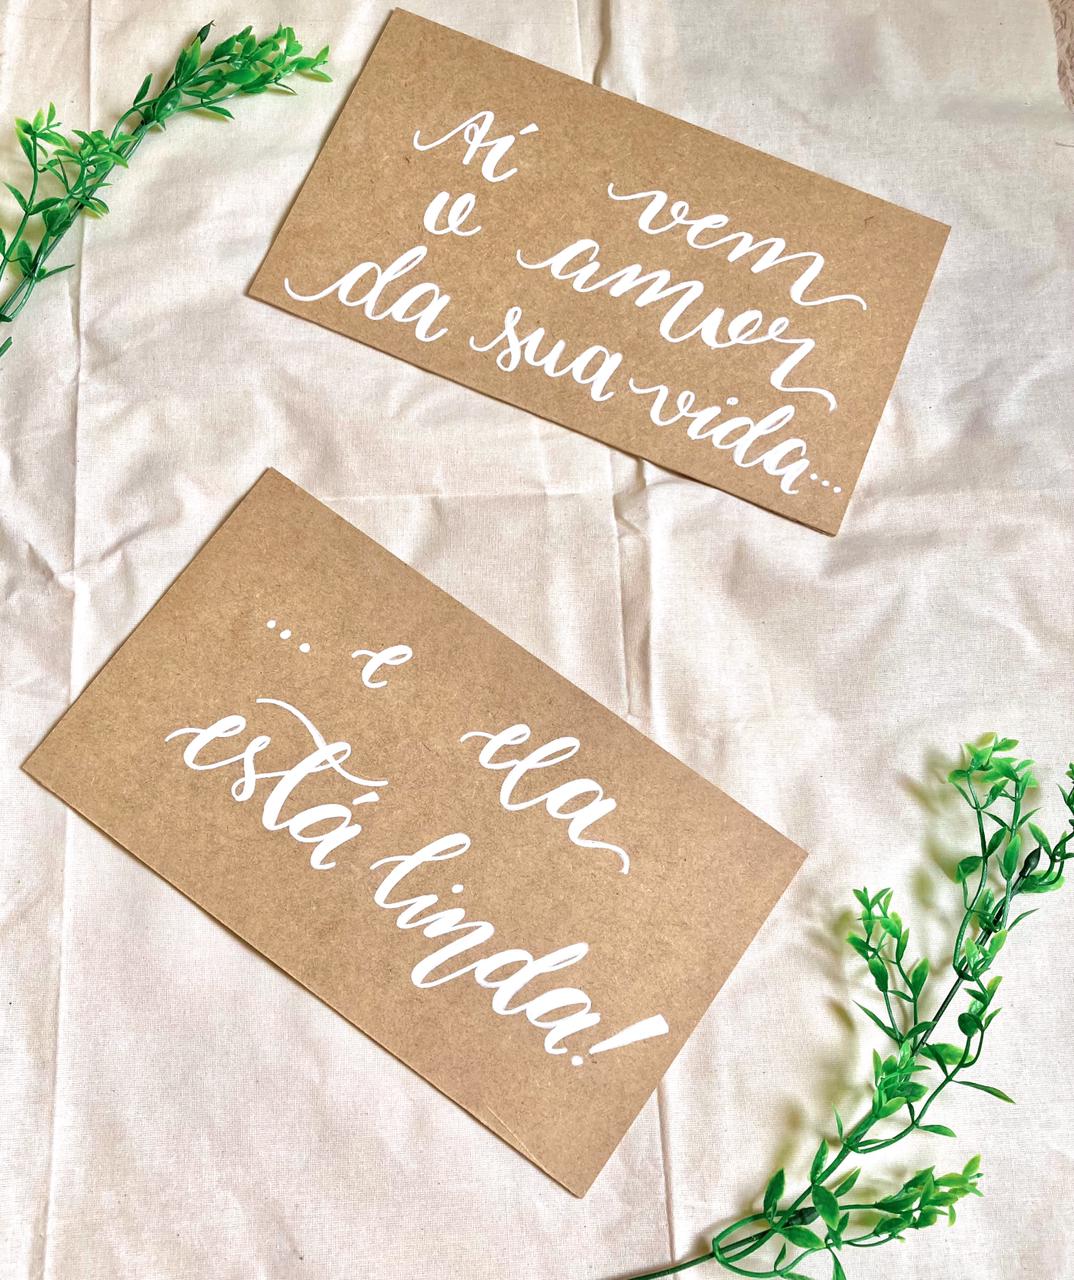 Aí vem
o amor
da sua vida...
... e ela
está linda!